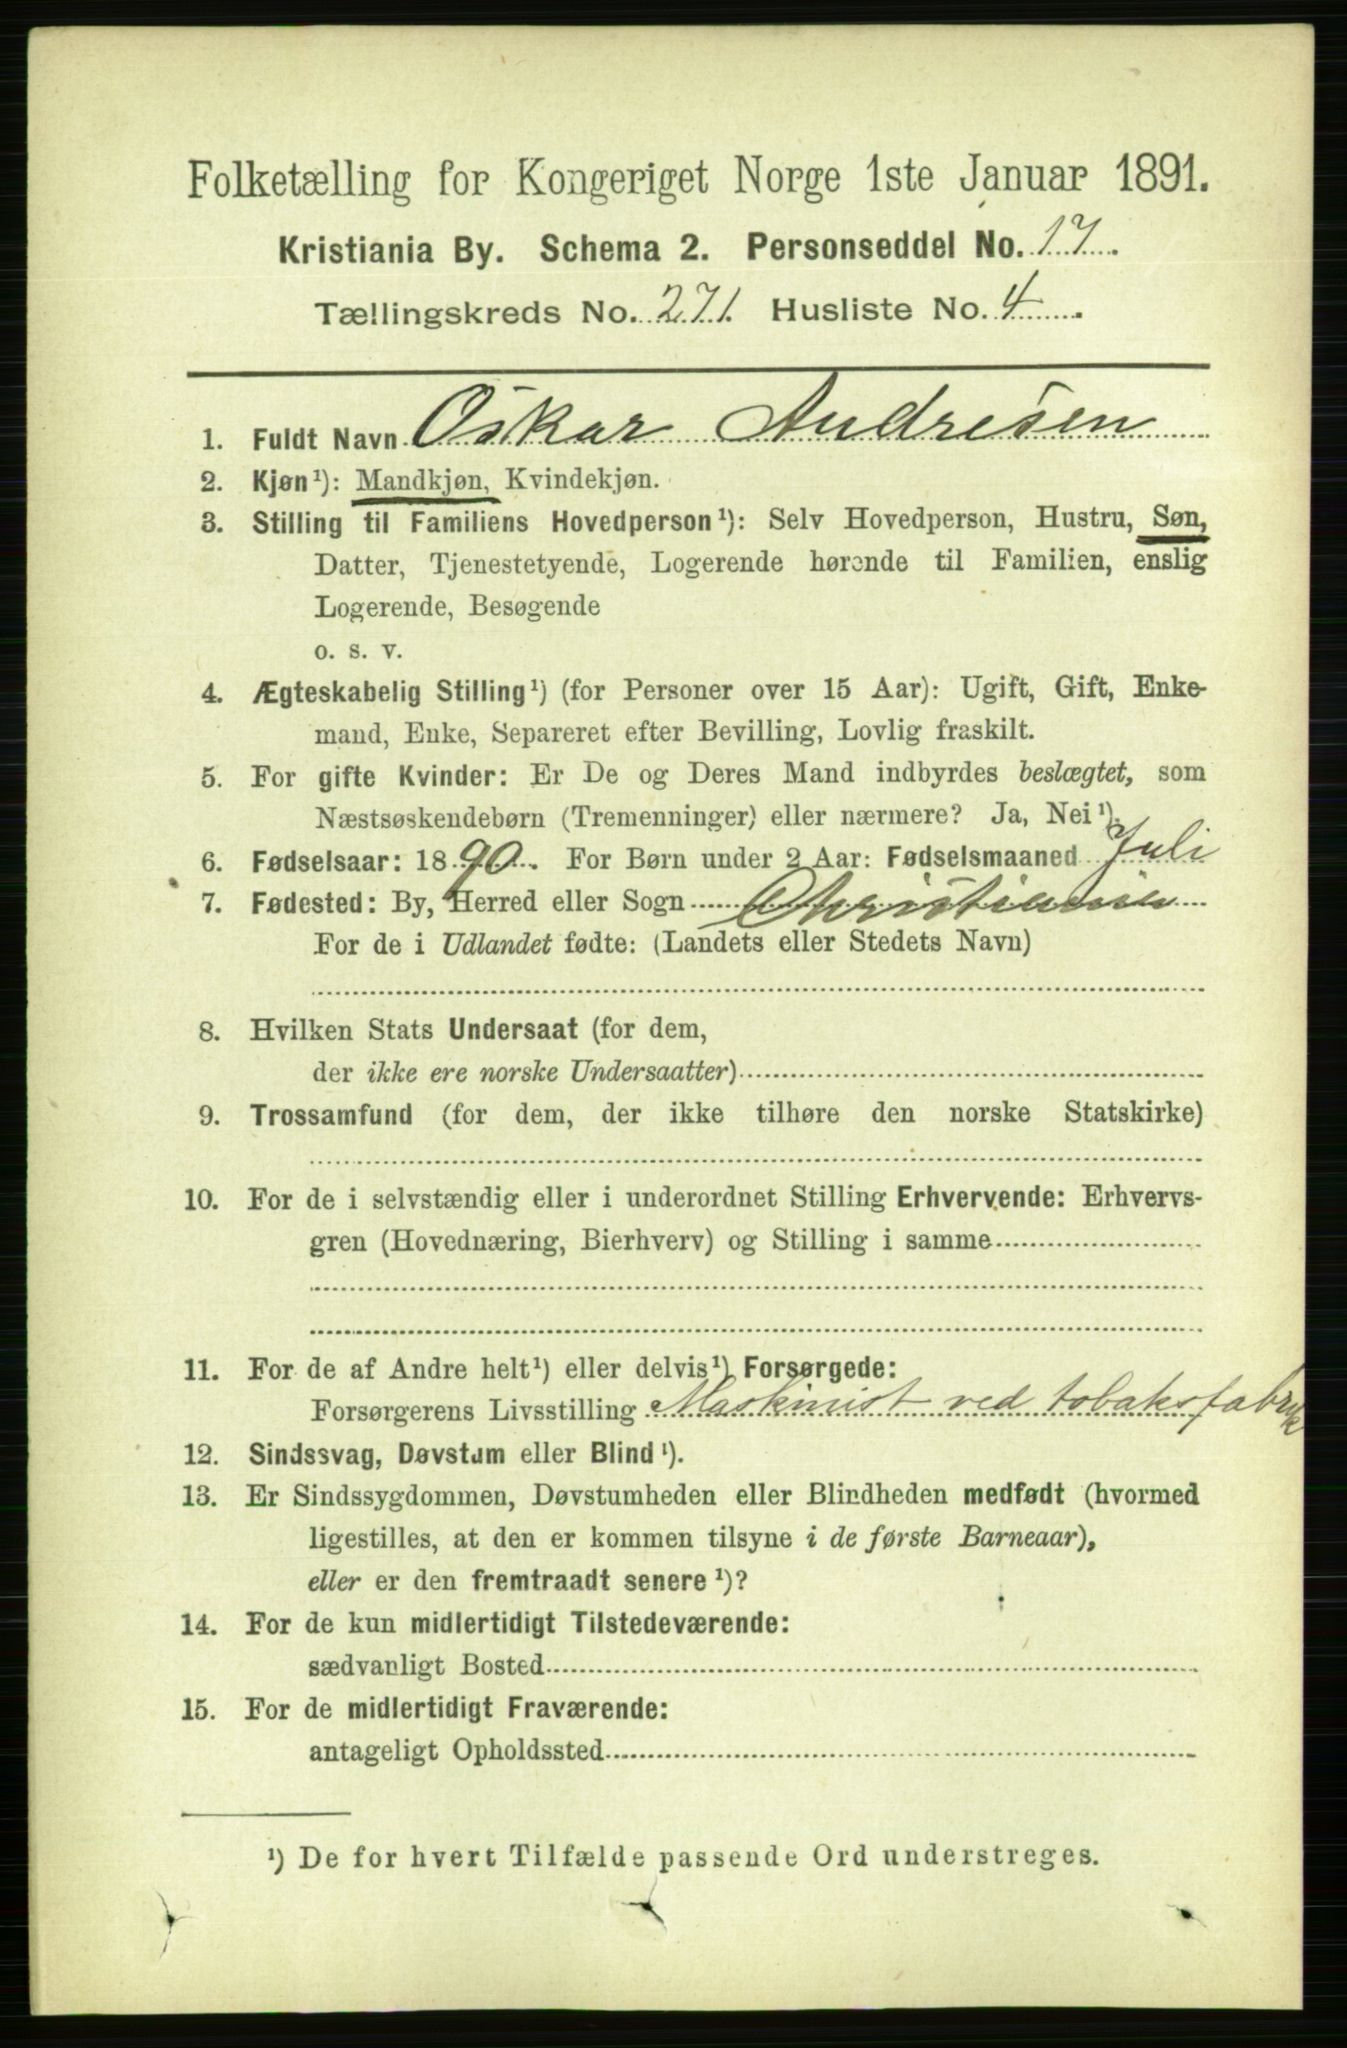 Folketælling for Kongeriget Norge 1ste Januar 1891.
Kristiania By. Schema 2. Personseddel No. 17.
Tællingskreds No. 271. Husliste No. 4.
1. Fuldt Navn Oskar Andresen
2. Kjøn¹): Mandkjøn, Kvindekjøn.
3. Stilling til Familiens Hovedperson¹): Selv Hovedperson, Hustru, Søn,
Datter, Tjenestetyende, Logerende hørende til Familien, enslig
Logerende, Besøgende
o. s. v.
4. Ægteskabelig Stilling¹) (for Personer over 15 Aar): Ugift, Gift, Enke-
mand, Enke, Separeret efter Bevilling, Lovlig fraskilt.
5. For gifte Kvinder: Er De og Deres Mand indbyrdes beslægtet, som
Næstsøskendebørn (Tremenninger) eller nærmere? Ja, Nei¹).
6. Fødselsaar: 1890. For Børn under 2 Aar: Fødselsmaaned Juli
7. Fødested: By, Herred eller Sogn Christiania
For de i Udlandet fødte: (Landets eller Stedets Navn)
8. Hvilken Stats Undersaat (for dem,
der ikke ere norske Undersaatter)
9. Trossamfund (for dem, der ikke tilhøre den norske Statskirke)
10. For de i selvstændig eller i underordnet Stilling Erhvervende: Erhvervs-
gren (Hovednæring, Bierhverv) og Stilling i samme
11. For de af Andre helt¹) eller delvis¹) Forsørgede:
Forsørgerens Livsstilling Maskinist ved tobaksfabrik
12. Sindssvag, Døvstum eller Blind¹).
13. Er Sindssygdommen, Døvstumheden eller Blindheden medfødt (hvormed
ligestilles, at den er kommen tilsyne i de første Barneaar),
eller er den fremtraadt senere¹)?
14. For de kun midlertidigt Tilstedeværende:
sædvanligt Bosted
15. For de midlertidigt Fraværende:
antageligt Opholdssted
¹) De for hvert Tilfælde passende Ord understreges.